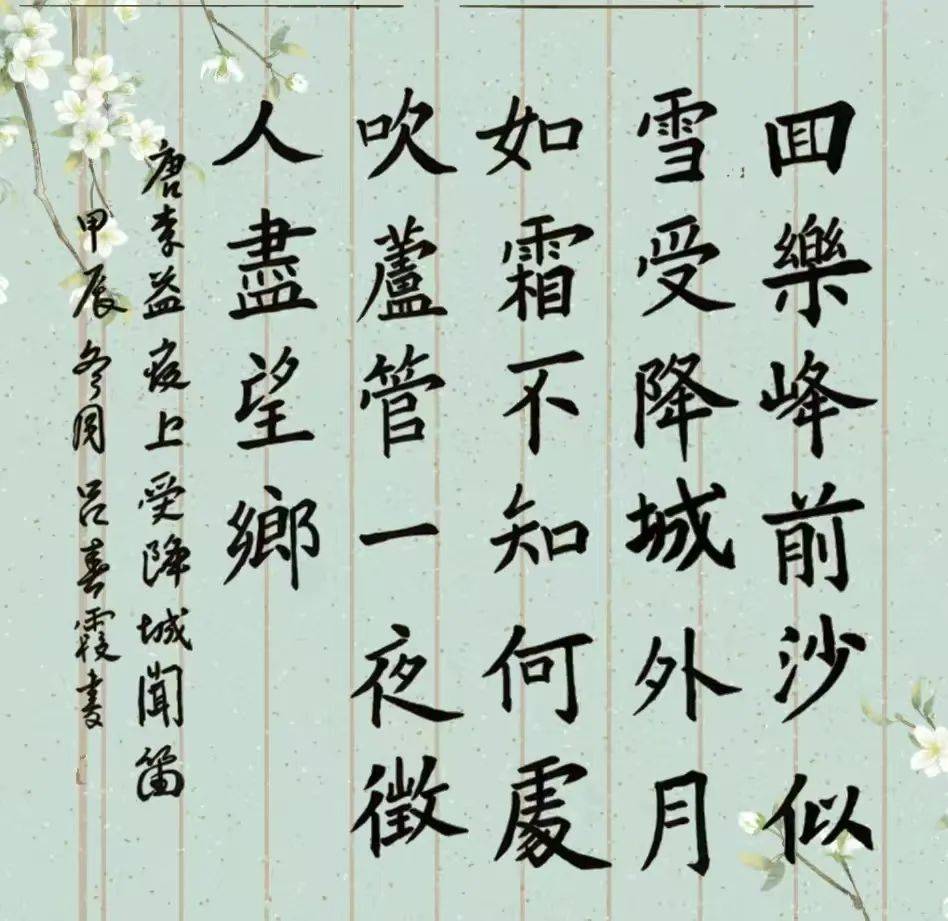 囬樂峰前沙似
雪受降城外月
如霜不知何處
吹蘆管一夜徵
人盡望鄉
唐李益夜上受降城聞笛
甲辰冬月吕春霞書